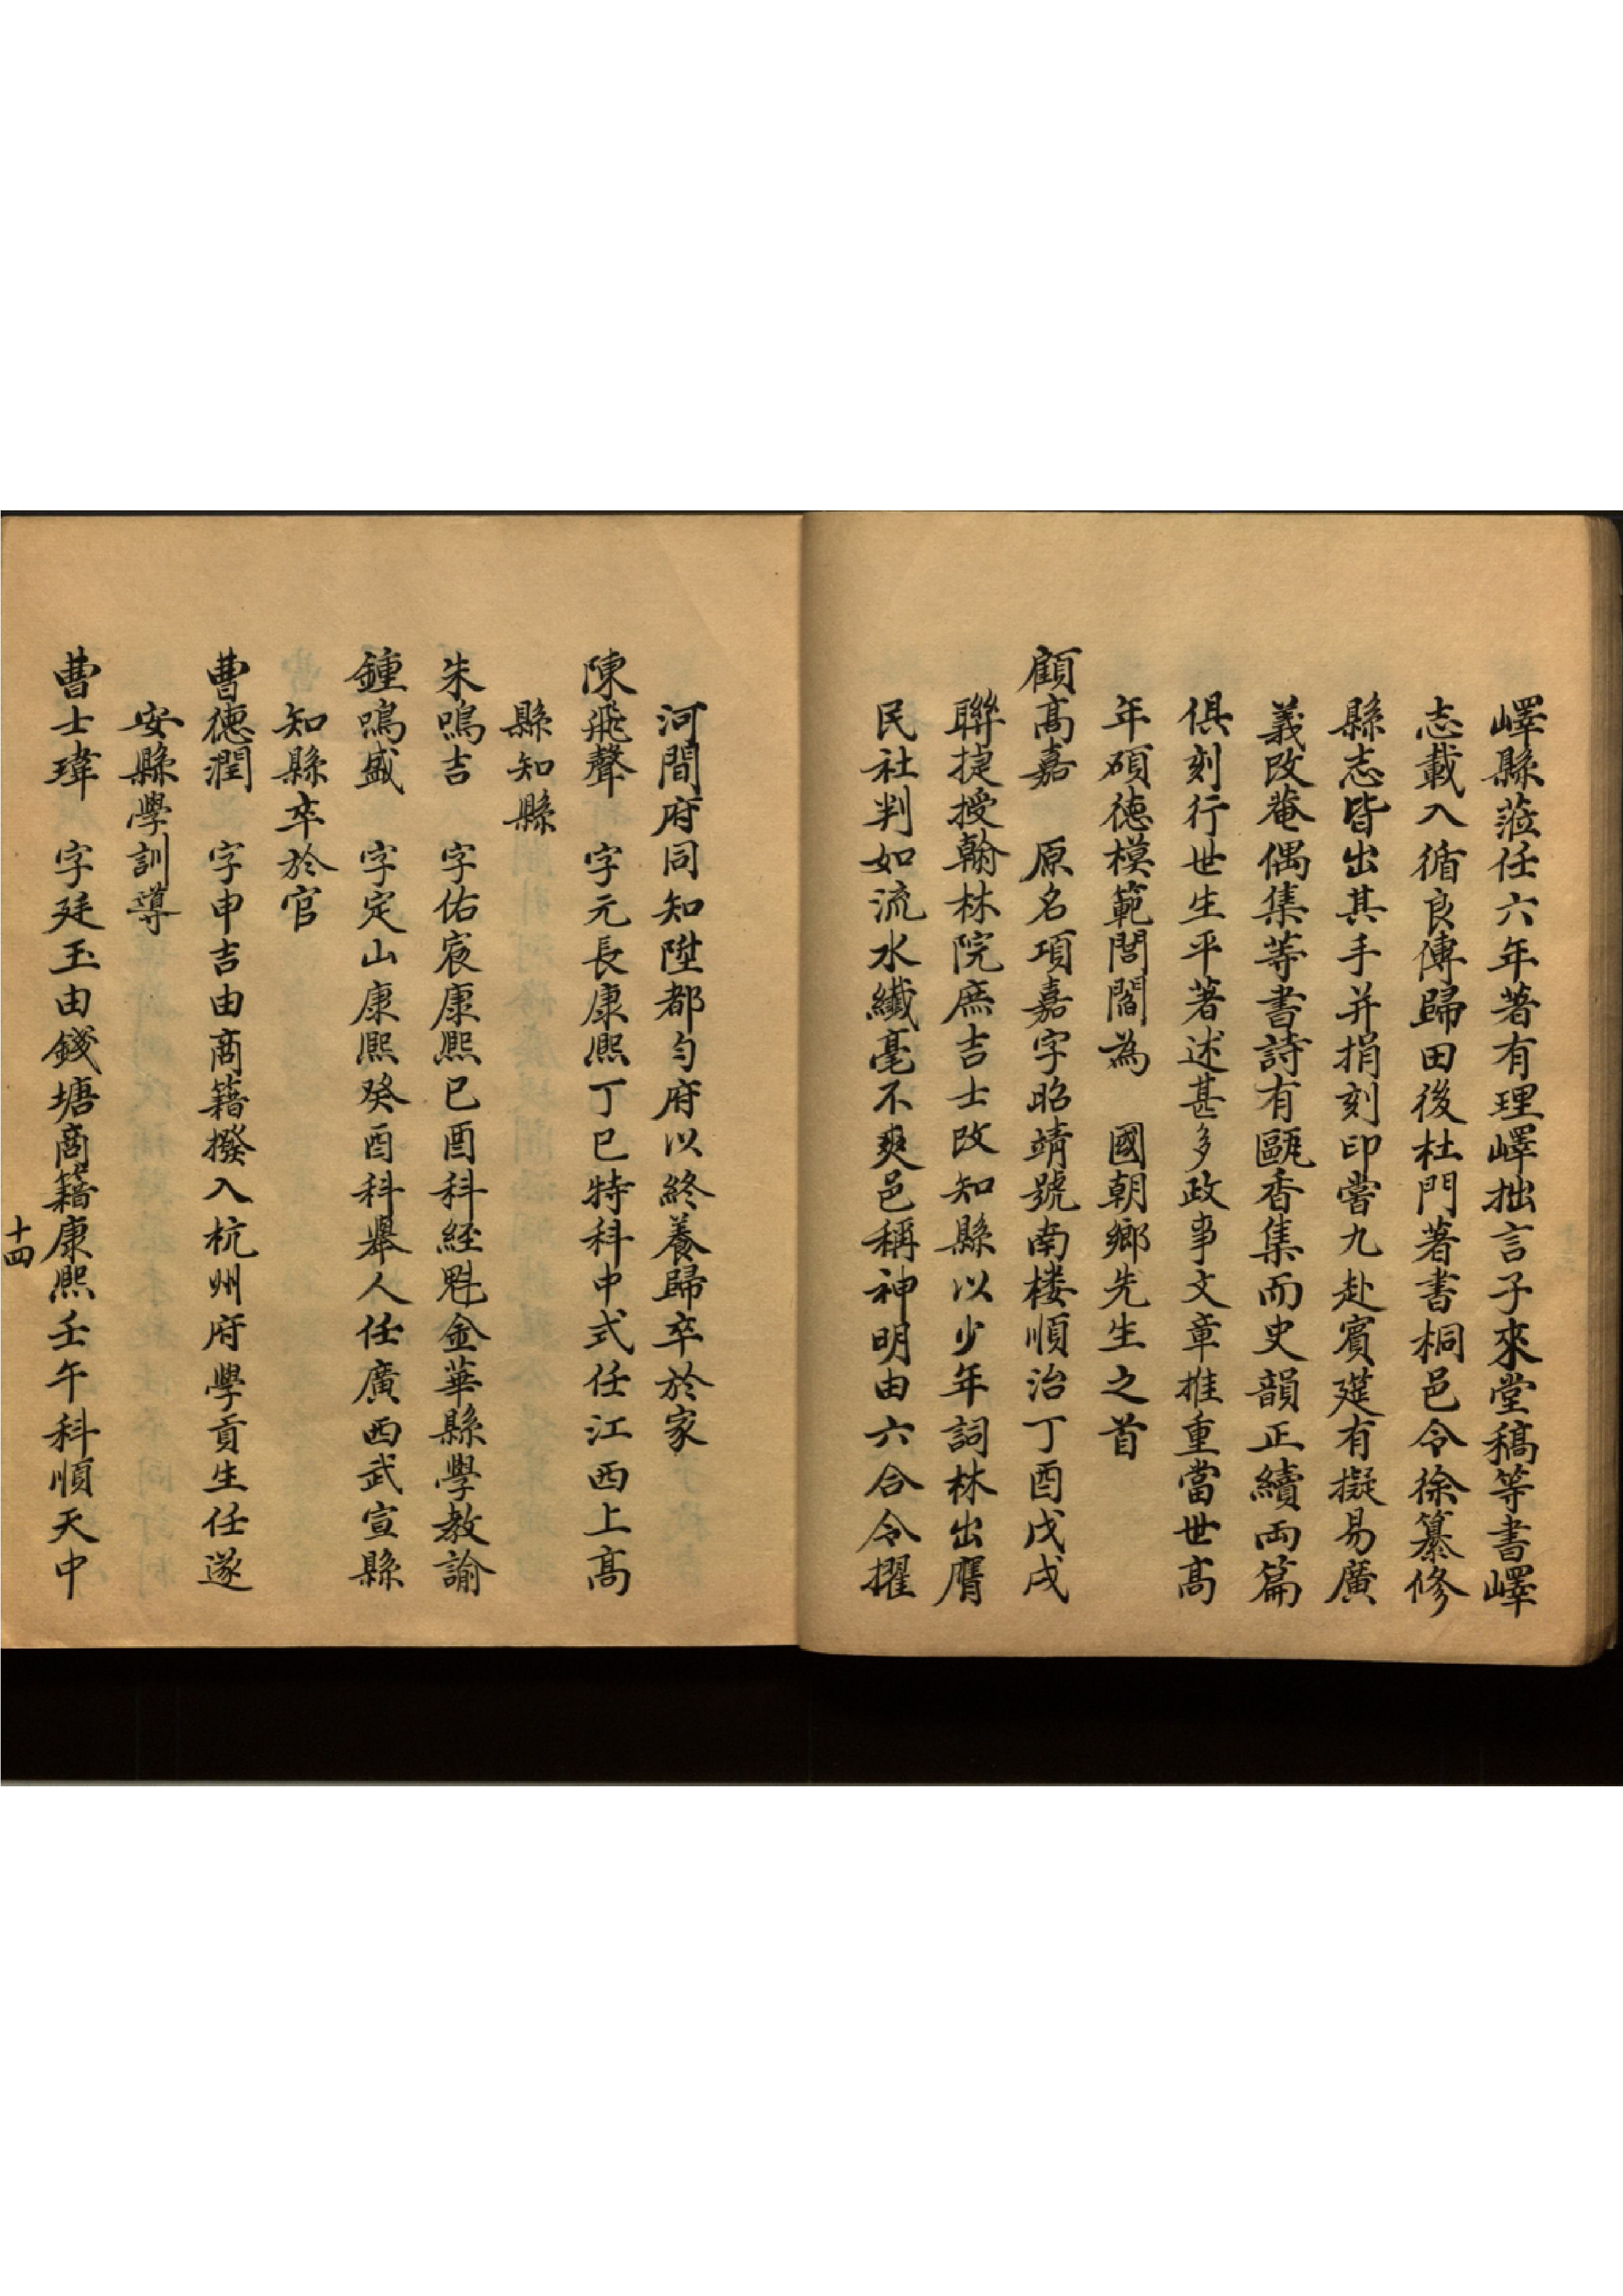 嶧縣蒞任六年著有理嶧拙言子來堂稿等書嶧
志載入循良傳歸田後杜門著書桐邑令徐纂修
縣志皆出其手并捐刻印嘗九赴賓筵有擬易廣
義改菴偶集等書詩有甌香集而史韻正續両篇
俱刻行世生平著述甚多政事文章推重當世高
年碩德模範閭閻為　國朝鄉先生之首
顧高嘉　原名項嘉字昭靖號南楼順治丁酉戊戌
聯捷授翰林院庶吉士改知縣以少年詞林出膺
民社判如流水纖毫不爽邑稱神明由六合令擢
河間府同知陞都勻府以終養歸卒於家
陳飛聲　字元長康熙丁巳特科中式任江西上高
縣知縣
朱鳴吉　字佑宸康熙己酉科経魁金華縣學教諭
鍾鳴盛　字定山康熙癸酉科舉人任廣西武宣縣
知縣卒於官
曹德潤　字申吉由商籍撥入杭州府學貢生任遂
安縣學訓導
曹士瑋　字廷玉由錢塘商籍康熙壬午科順天中
十四